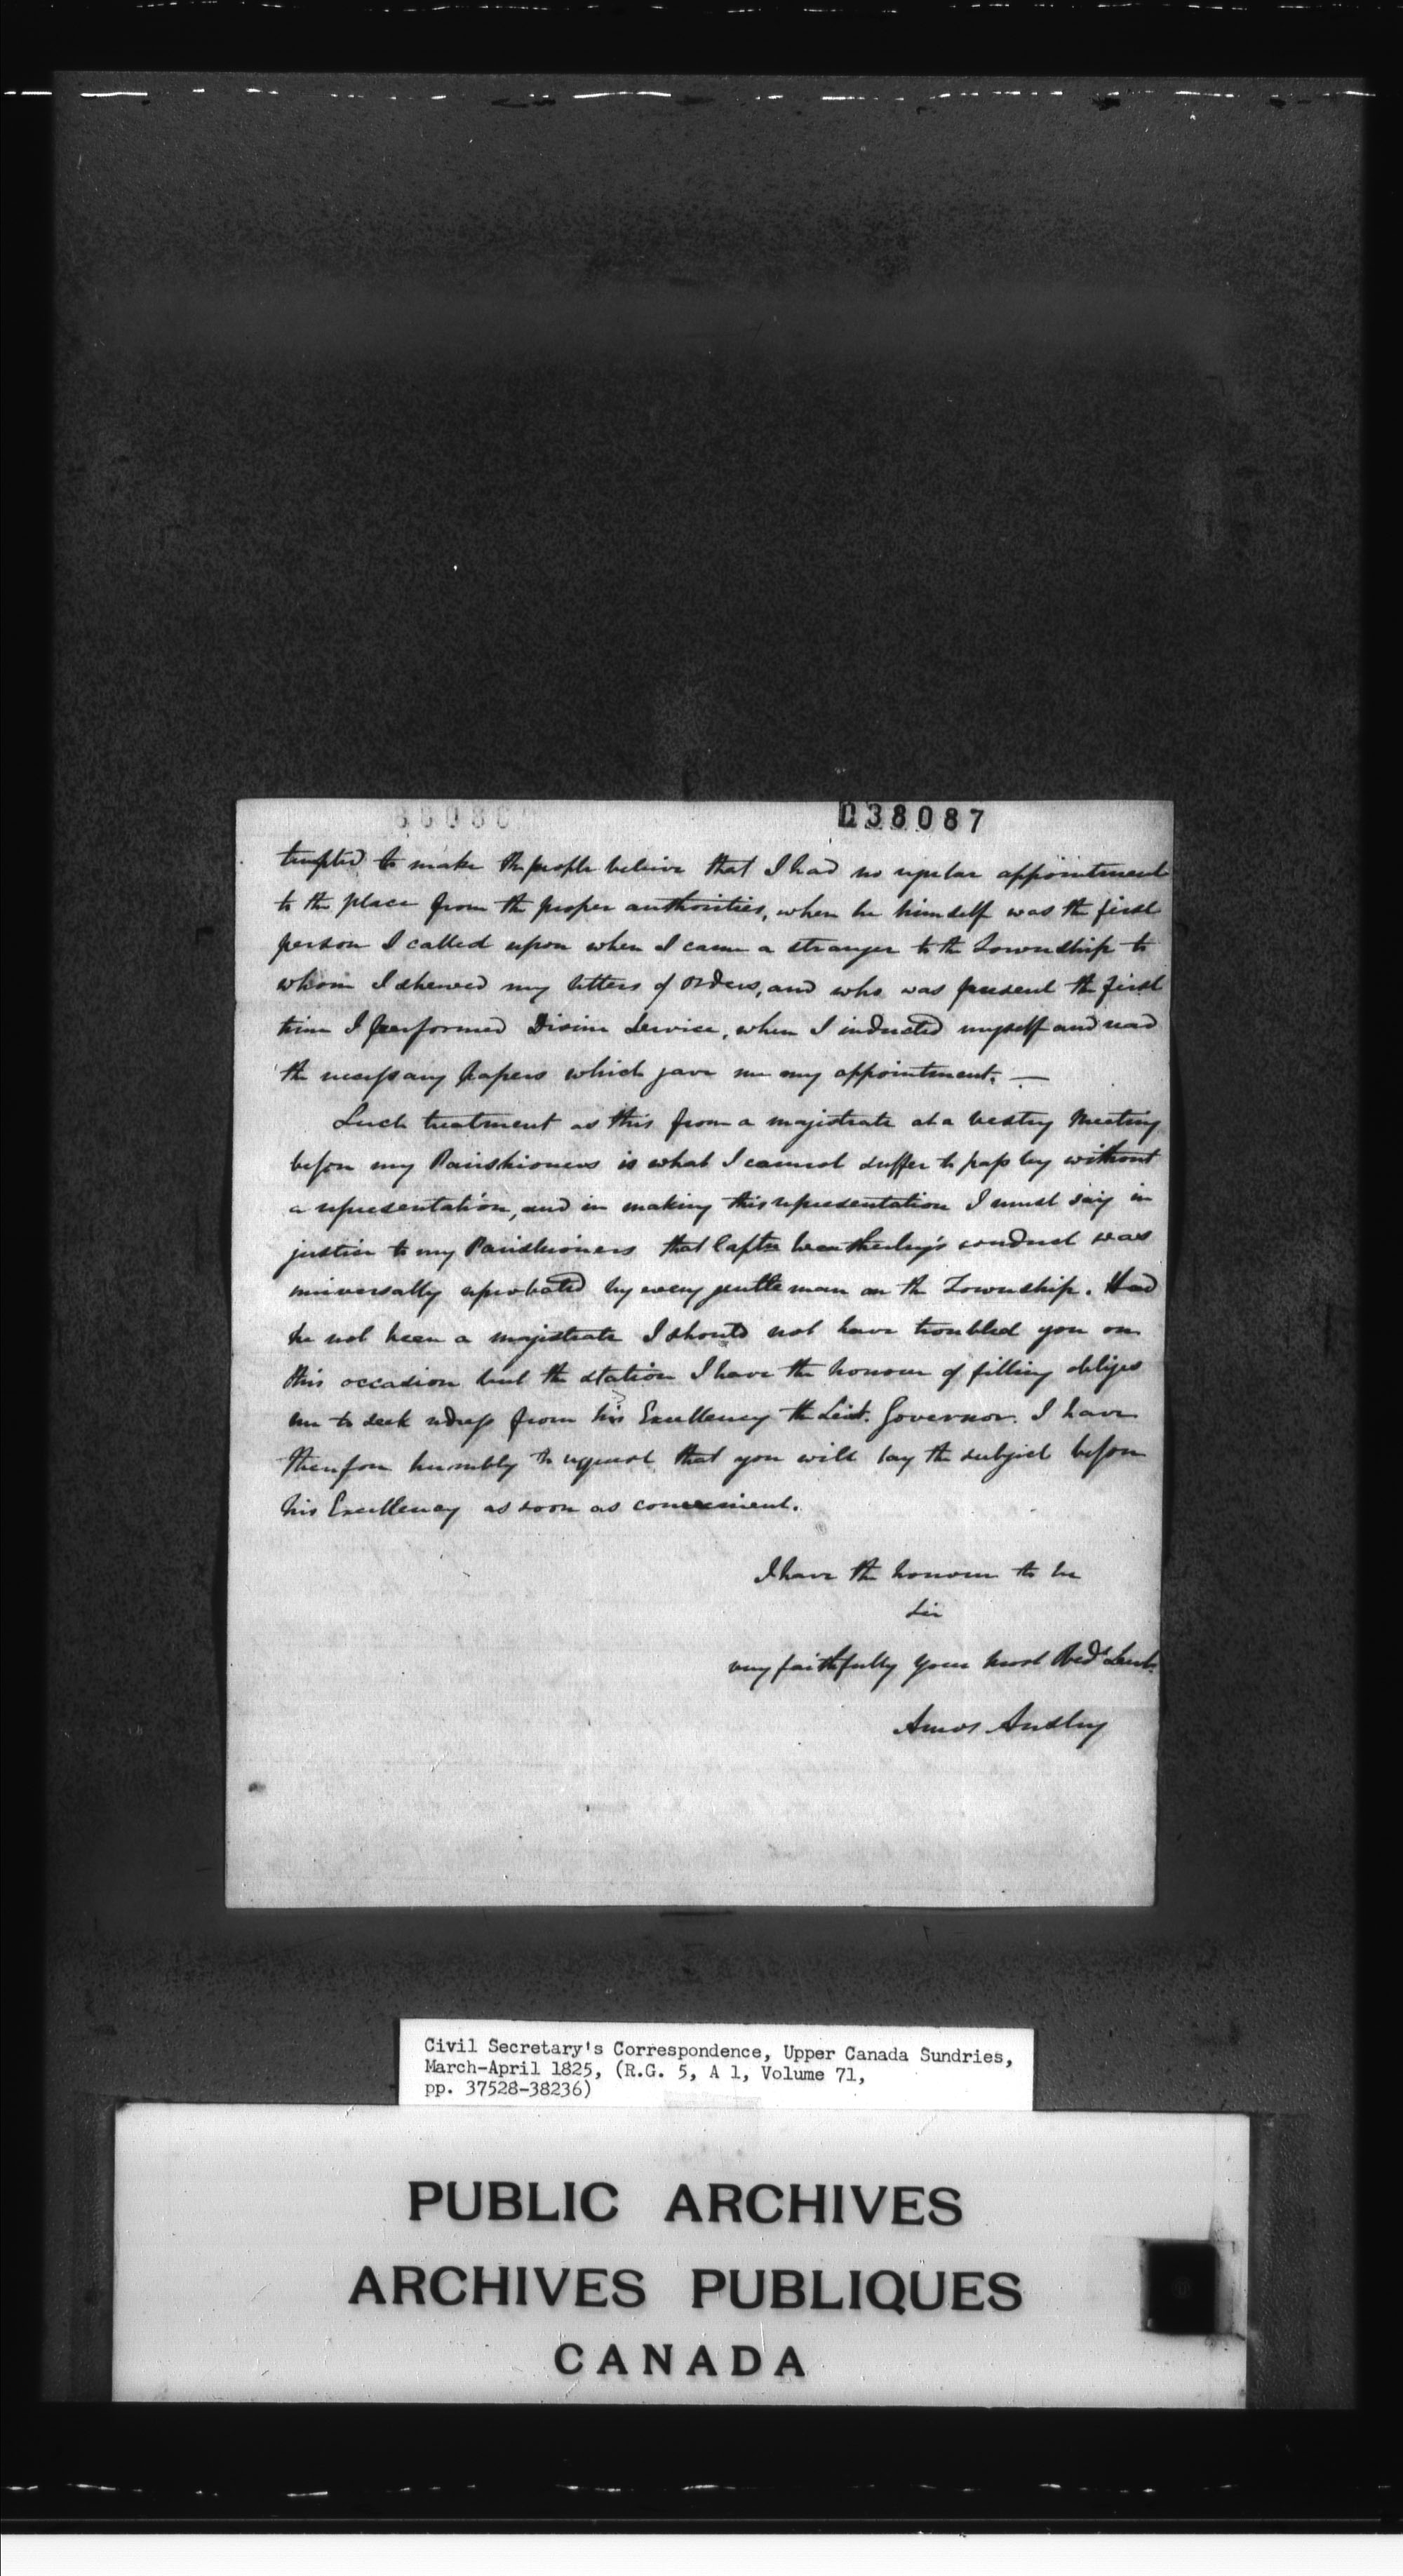 038087
tempted to make the people believe that I had no regular appointment
to the place from the proper authorities, when he himself was the first
person I called upon when I came a stranger to the Township to
whom I shewed my letters of Orders, and who was present the first
time I performed Divine Service, when I inducted myself and read
the necessary papers which gave me my appointment. —
Such treatment as this from a magistrate at a vestry Meeting
before my Parishioners is what I cannot suffer to pass by without
a representation, and in making this representation I must say in
justice to my Parishioners that Captn Weatherley's conduct was
universally reprobated by every gentleman in the Township. Had
he not been a magistrate I should not have troubled you on
this occasion but the station I have the honour of filling obliges
me to seek redress from his Excellency the Lieut. Governor. I have
therefore humbly to request that you will lay the subject before
his Excellency as soon as convenient.
I have the honour to be
Sir
very faithfully your most Obed Servt.
Amos Ansley
Civil Secretary's Correspondence, Upper Canada Sundries,
March-April 1825, (R.G. 5, A 1, Volume 71,
pp. 37528-38236)
PUBLIC ARCHIVES
ARCHIVES PUBLIQUES
CANADA